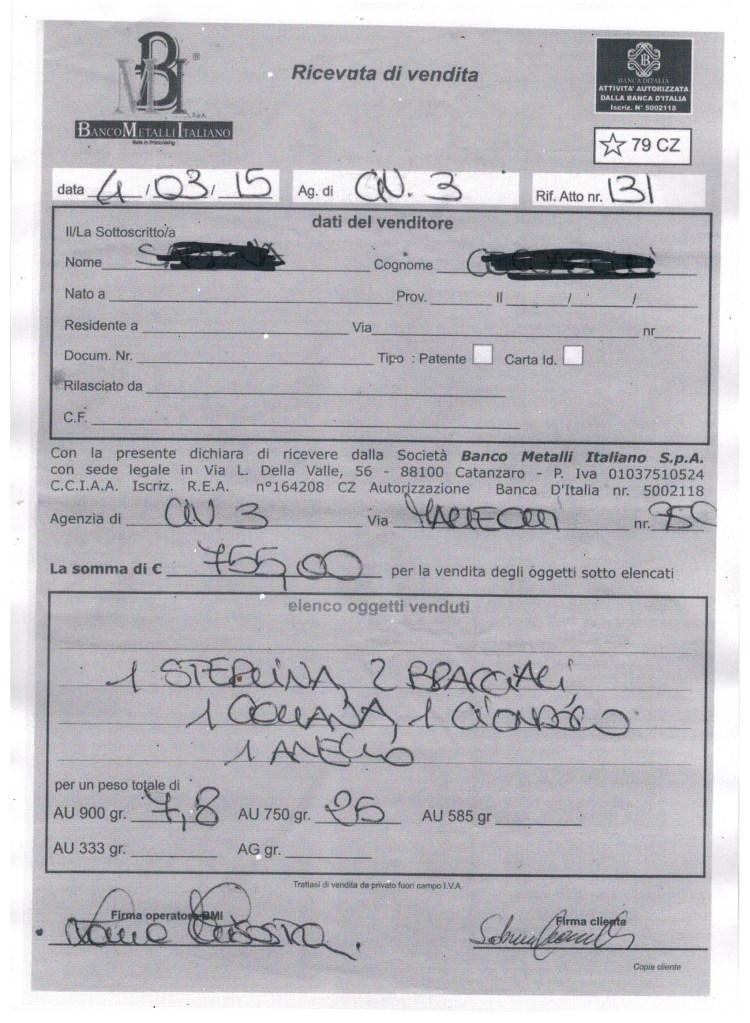 BMI
®
S.p.A.
BANCOMETALLIITALIANO
Ricevuta di vendita
BANCA D'ITALIA
ATTIVITA' AUTORIZZATA
DALLA BANCA D'ITALIA
Iscriz. N° 5002118
79 CZ
data 4/03/15 Ag. di CIV. 3 Rif. Atto nr. 131
dati del venditore
Il/La Sottoscritto/a
Nome Cognome
Nato a Prov. Il / /
Residente a Via nr
Docum. Nr. Tipo : Patente Carta Id.
Rilasciato da
C.F.
Con la presente dichiara di ricevere dalla Società Banco Metalli Italiano S.p.A.
con sede legale in Via L. Della Valle, 56 - 88100 Catanzaro - P. Iva 01037510524
C.C.I.A.A. Iscriz. R.E.A. n°164208 CZ Autorizzazione Banca D'Italia nr. 5002118
Agenzia di CIV. 3 Via nr.
La somma di € 755,00 per la vendita degli oggetti sotto elencati
elenco oggetti venduti
1 STERLINA, 2 BRACCIALI
1 COLLANA, 1 CIONDOLO
1 ANELLO
per un peso totale di
AU 900 gr. 7,8 AU 750 gr. 25 AU 585 gr
AU 333 gr. AG gr.
Trattasi di vendita da privato fuori campo I.V.A.
Firma operatore BMI Firma cliente
Copia cliente